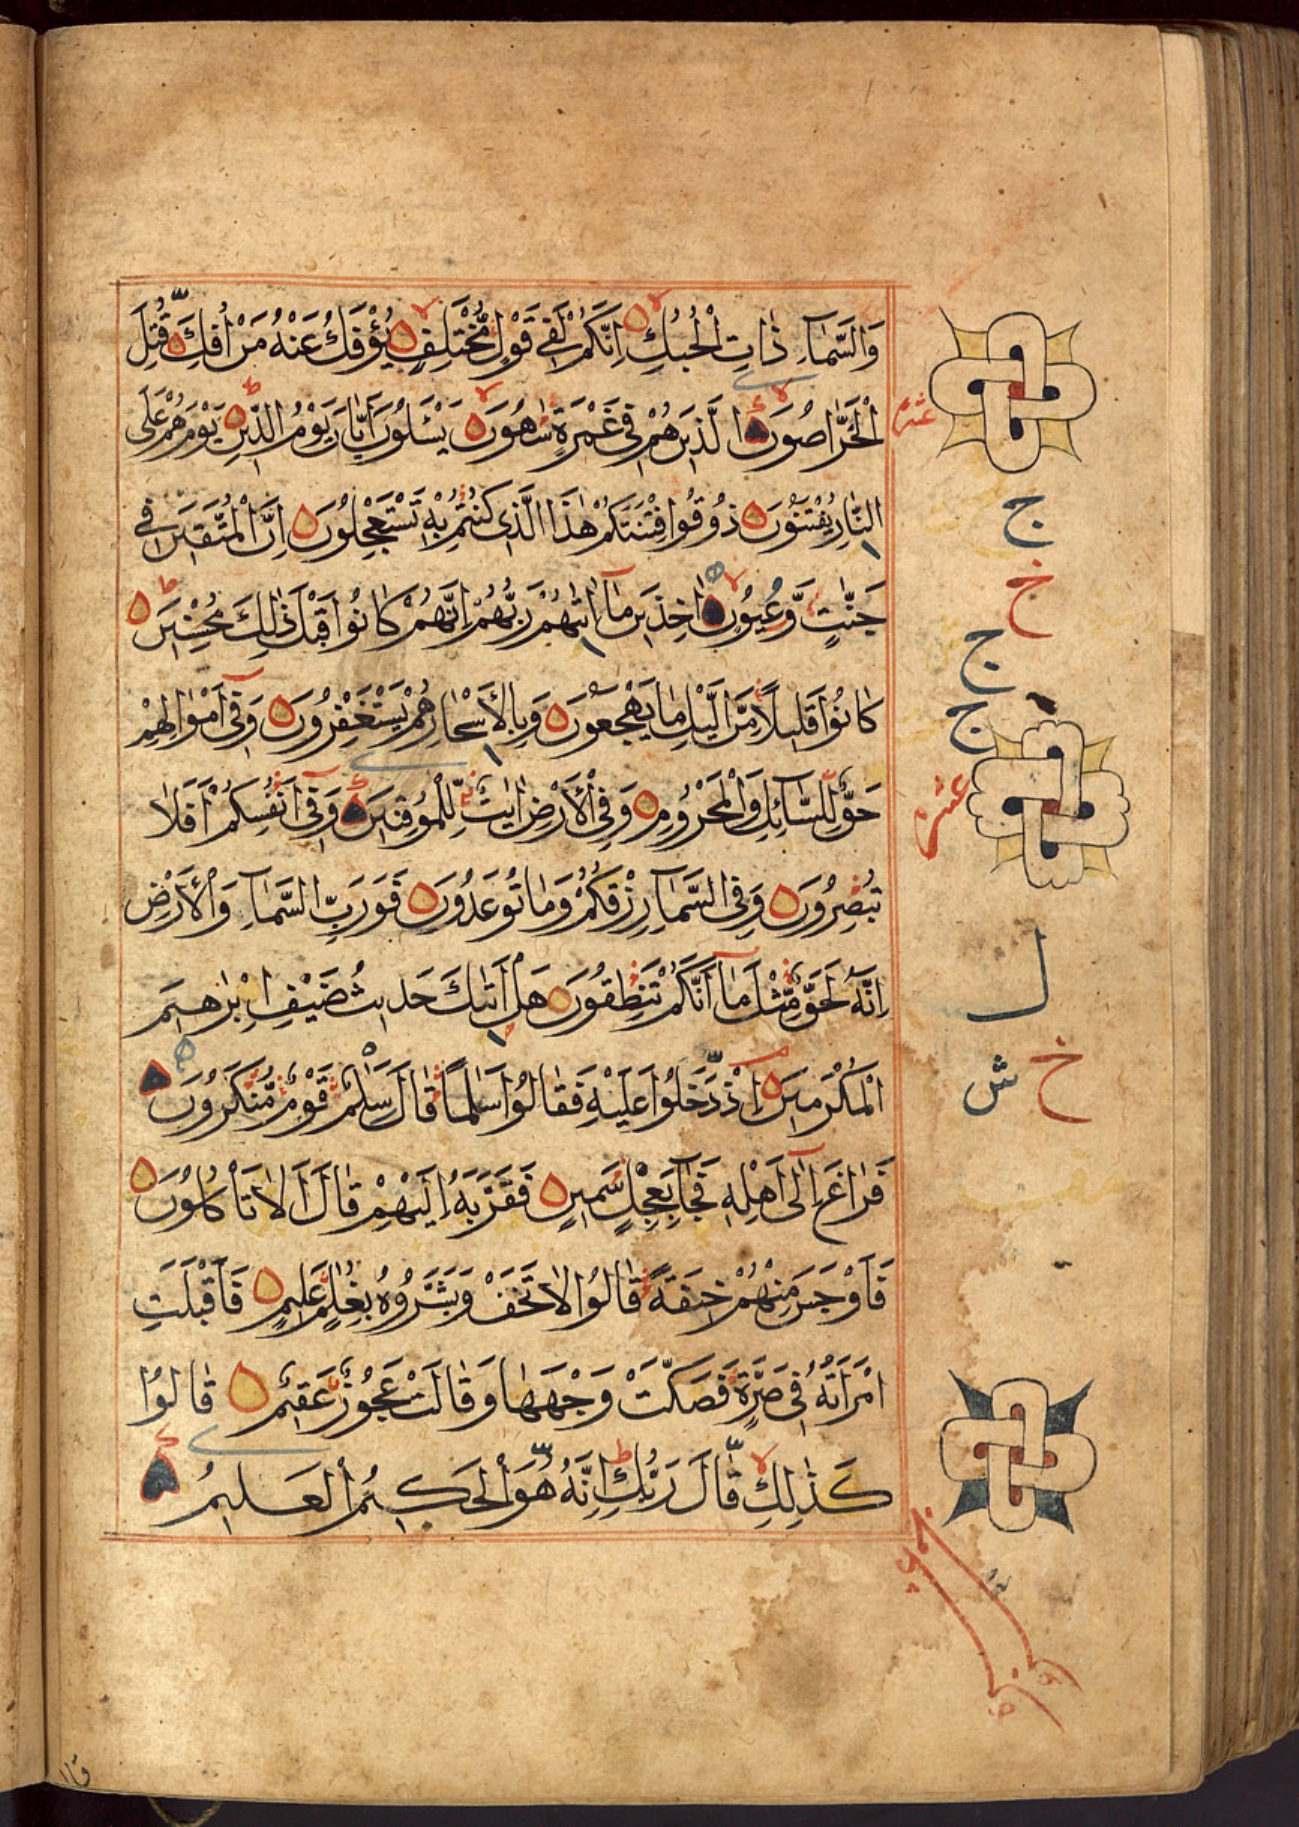 وَالسَّمَآءِ ذَاتِ الْحُبُكِ اِنَّكُمْ لَفِي قَوْلٍ مُّخْتَلِفٍ يُؤْفَكُ عَنْهُ مَنْ اُفِكَ قُتِلَ
الْخَرَّاصُونَ الَّذِينَ هُمْ فِي غَمْرَةٍ سَاهُونَ يَسْـَٔلُونَ اَيَّانَ يَوْمُ الدِّينِ يَوْمَ هُمْ عَلَى
النَّارِ يُفْتَنُونَ ذُوقُوا فِتْنَتَكُمْ هٰذَا الَّذِي كُنْتُمْ بِهِ تَسْتَعْجِلُونَ اِنَّ الْمُتَّقِينَ فِي
جَنّٰتٍ وَّعُيُونٍ اٰخِذِينَ مَآ اٰتٰىهُمْ رَبُّهُمْ اِنَّهُمْ كَانُوا قَبْلَ ذٰلِكَ مُحْسِنِينَ
كَانُوا قَلِيلًا مِّنَ الَّيْلِ مَا يَهْجَعُونَ وَبِالْاَسْحَارِ هُمْ يَسْتَغْفِرُونَ وَفِيٓ اَمْوَالِهِمْ
حَقٌّ لِّلسَّآئِلِ وَالْمَحْرُومِ وَفِي الْاَرْضِ اٰيٰتٌ لِّلْمُوقِنِينَ وَفِيٓ اَنْفُسِكُمْ اَفَلَا
تُبْصِرُونَ وَفِي السَّمَآءِ رِزْقُكُمْ وَمَا تُوعَدُونَ فَوَرَبِّ السَّمَآءِ وَالْاَرْضِ
اِنَّهُ لَحَقٌّ مِّثْلَ مَآ اَنَّكُمْ تَنْطِقُونَ هَلْ اَتٰىكَ حَدِيثُ ضَيْفِ اِبْرٰهِيمَ
الْمُكْرَمِينَ اِذْ دَّخَلُوا عَلَيْهِ فَقَالُوا سَلٰمًا قَالَ سَلٰمٌ قَوْمٌ مُّنْكَرُونَ
فَرَاغَ اِلٰٓى اَهْلِهِ فَجَآءَ بِعِجْلٍ سَمِينٍ فَقَرَّبَهُ اِلَيْهِمْ قَالَ اَلَا تَأْكُلُونَ
فَاَوْجَسَ مِنْهُمْ خِيفَةً قَالُوا لَا تَخَفْ وَبَشَّرُوهُ بِغُلٰمٍ عَلِيمٍ فَاَقْبَلَتِ
امْرَاَتُهُ فِي صَرَّةٍ فَصَكَّتْ وَجْهَهَا وَقَالَتْ عَجُوزٌ عَقِيمٌ قَالُوا
كَذٰلِكِ قَالَ رَبُّكِ اِنَّهُ هُوَ الْحَكِيمُ الْعَلِيمُ
عشر
ج
خ
ج
ج
عشر
ل
خ ش